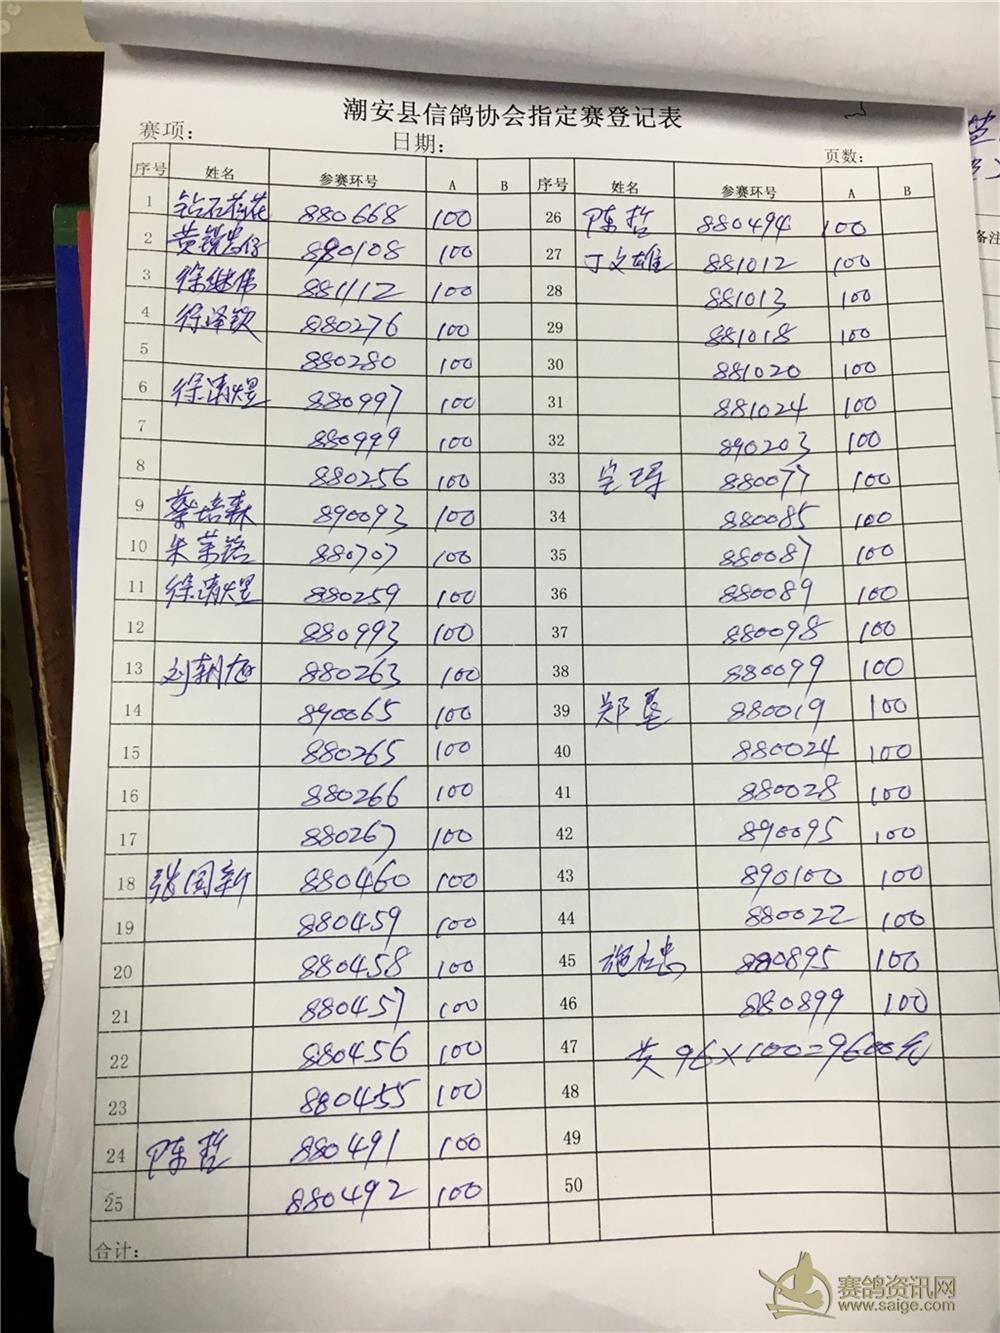 潮安县信鸽协会指定赛登记表
赛项: 日期: 页数:
序号 姓名 参赛环号 A B 序号 姓名 参赛环号 A B
1 钻石荷花 880668 100 26 陈哲 880494 100
2 黄锐 890108 100 27 丁文雄 881012 100
3 徐继伟 881112 100 28 881013 100
4 徐泽钦 880276 100 29 881018 100
5 880280 100 30 881020 100
6 徐清煜 880997 100 31 881024 100
7 880999 100 32 890203 100
8 880256 100 33 880077 100
9 蔡培森 890093 100 34 880085 100
10 朱荣 880707 100 35 880087 100
11 徐清煜 880259 100 36 880089 100
12 880993 100 37 880098 100
13 刘朝旭 880263 100 38 880099 100
14 890065 100 39 郑垦 880019 100
15 880265 100 40 880024 100
16 880266 100 41 880028 100
17 880267 100 42 890095 100
18 张国新 880460 100 43 890100 100
19 880459 100 44 880022 100
20 880458 100 45 880895 100
21 880457 100 46 880899 100
22 880456 100 47 共96×100=9600元
23 880455 100 48
24 陈哲 880491 100 49
25 880492 100 50
合计:
备注
赛鸽资讯网
www.saige.com